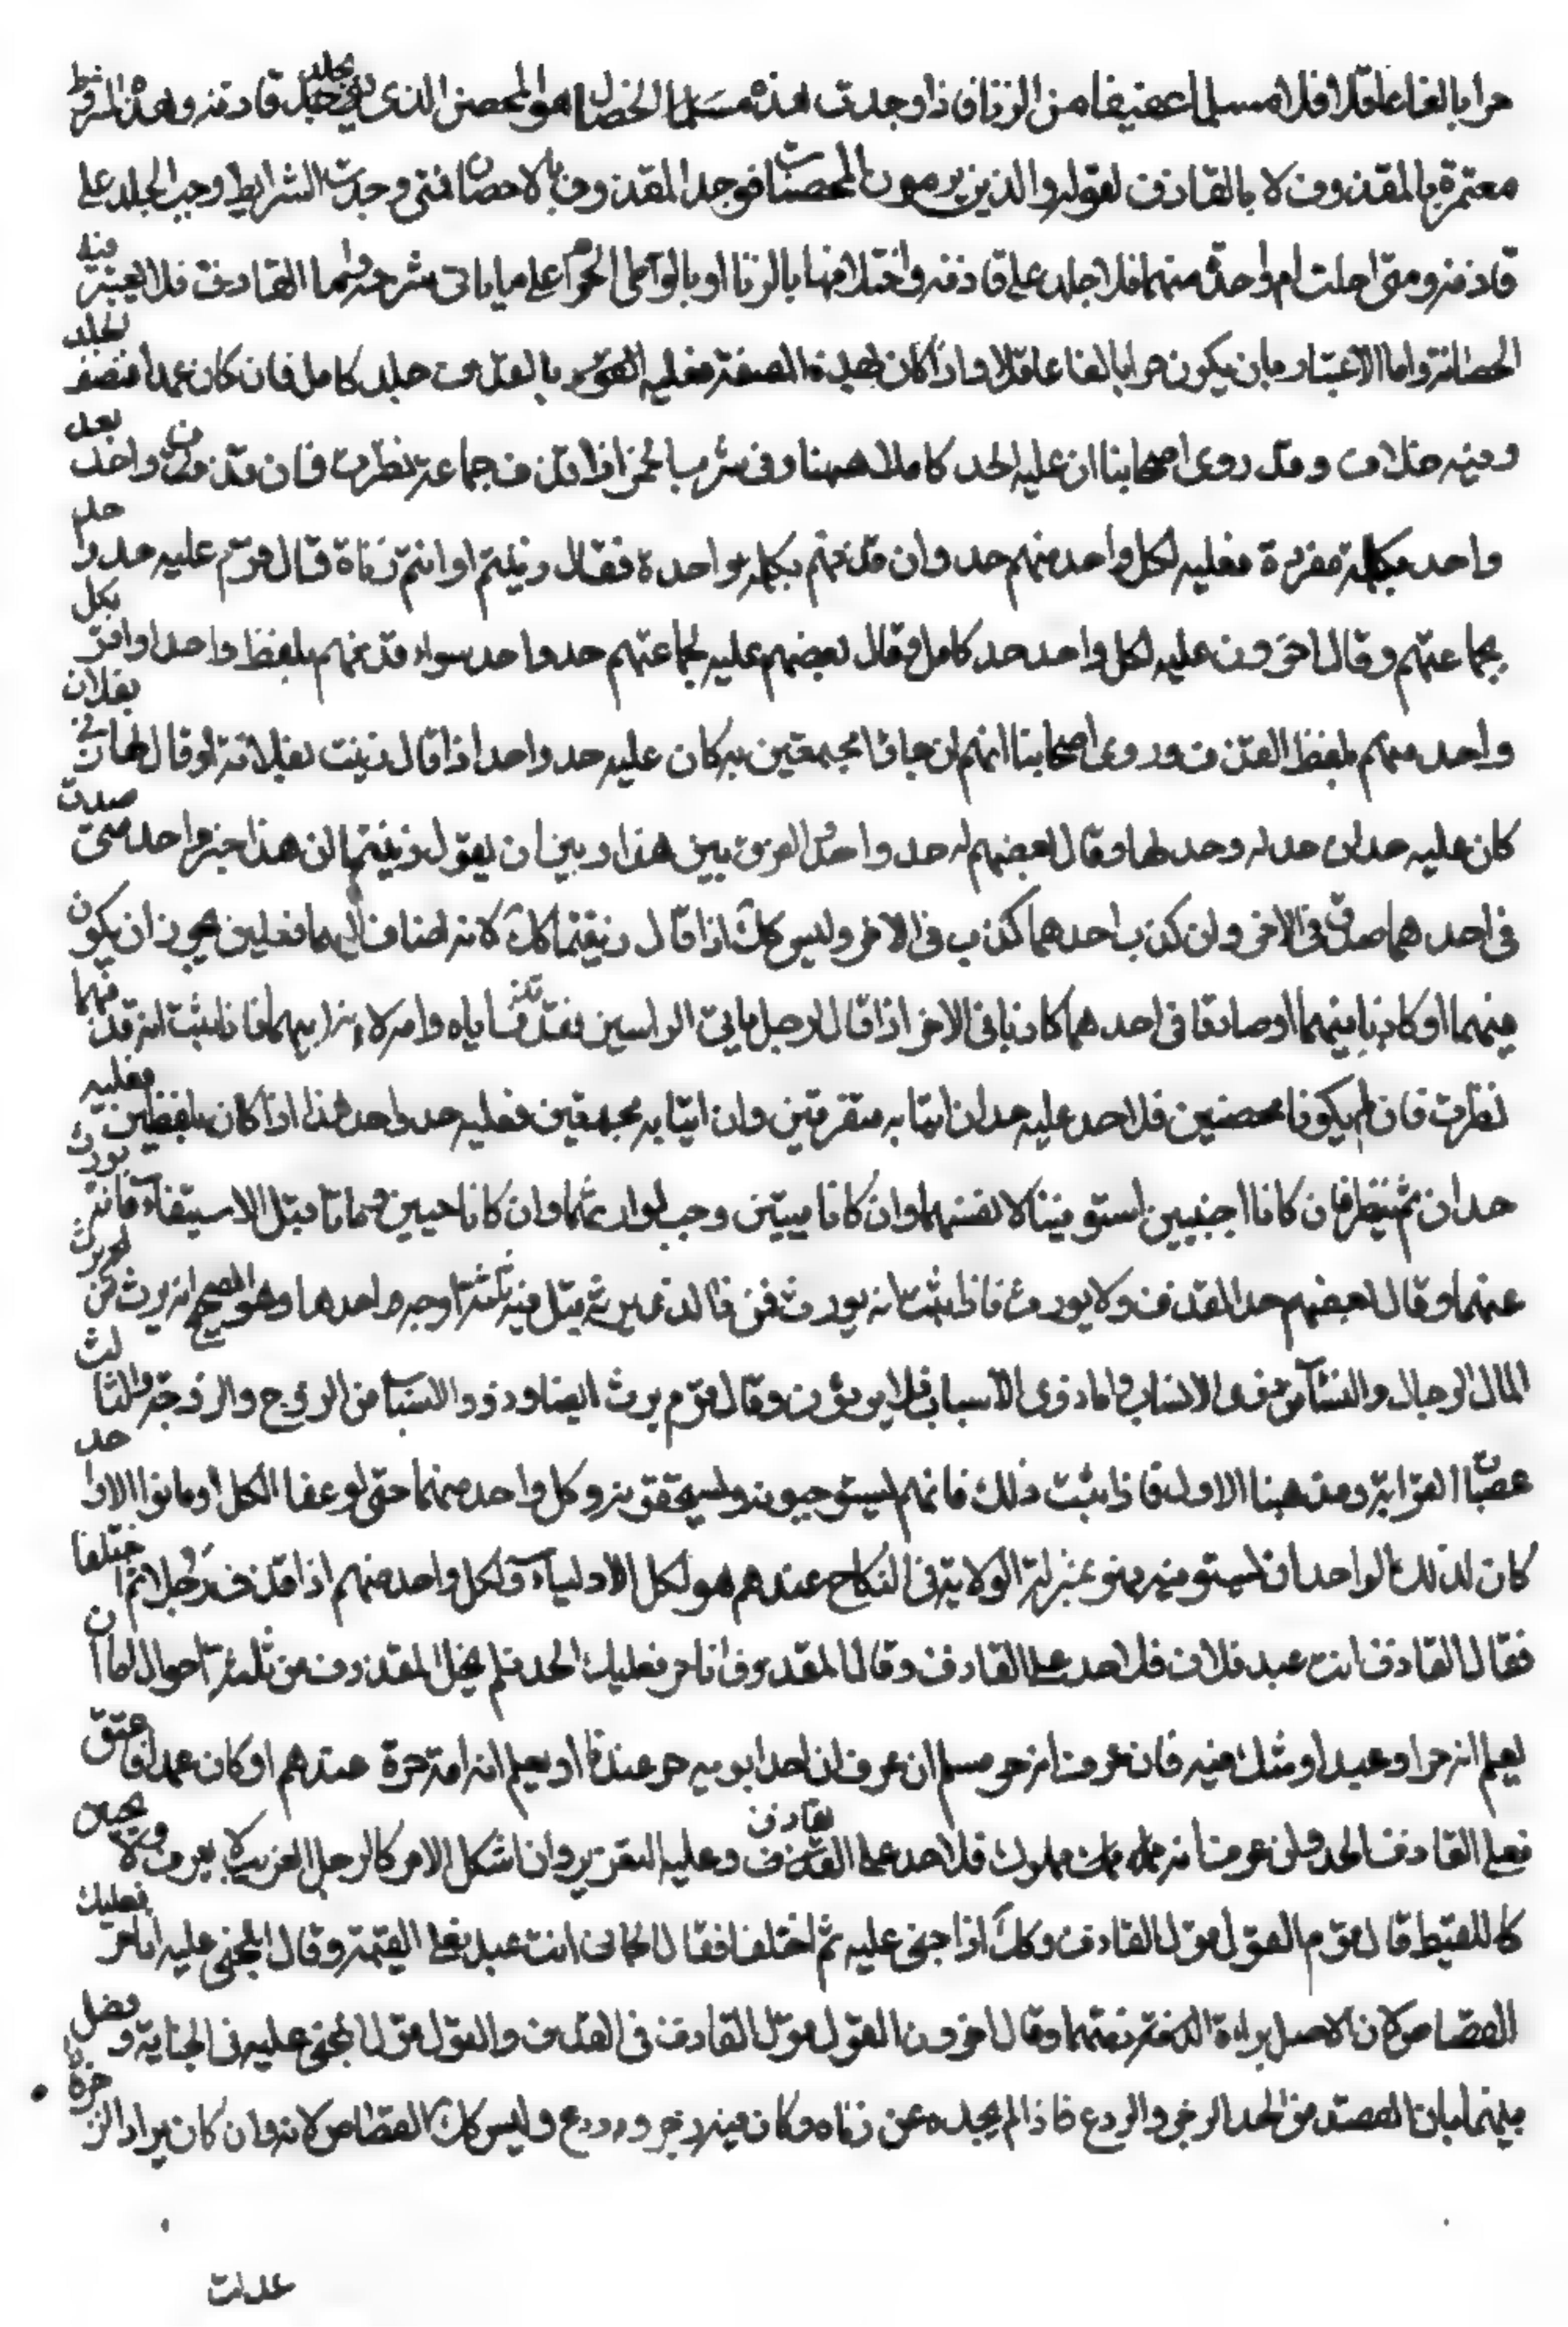 حرا بالغا عاقلا مسلما عفيفا من الزنا فاذا وجدت هذه الخصال هو المحصن الذى يجلد قاذفه وهذه الشرائط
معتبرة بالمقذوف لا بالقاذف لقوله والذين يرمون المحصنات فوجد المقذوف بالاحصان فمتى وجدت الشرايط وجب الجلد على
قاذفه ومتى اختلت واحدة منهما فلا جلد على قاذفه واختلافها بالزنا او بالوطى الحرام على ما ياتى شرحه واما القاذف فلا يعتبر فيه
الحصانة وانما الاعتبار بان يكون حرا بالغا عاقلا فاذا كان بهذه الصفة فعليه بالقذف جلد كامل فان كان عبدا فنصف الجلد
وفيه خلاف وقد روى اصحابنا ان عليه الحد كاملا ههنا وفى شرب الخمر اذا قذف جماعة نظرت فان قذف واحدا بعد
واحد بكلمة مفردة فعليه لكل واحد منهم حد وان قذفهم بكلمة واحدة فقال زنيتم او انتم زناة قال قوم عليه حد واحد
لجماعتهم وقال اخرون عليه لكل واحد حد كامل وقال بعضهم عليه لجماعتهم حد واحد سواء قذفهم بلفظ واحد او افرد كل
واحد منهم بلفظ القذف وروى اصحابنا انهم ان جاؤا مجتمعين به كان عليه حد واحد اذا قال زنيت بفلانة او قال لها زنى بك فلان
كان عليه حدان حد له وحد لها وقال بعضهم له حد واحد الفرق بين هذا وبين ان يقول زنيتما ان هذا خبر واحد متى صدق
فى احدهما صدق فى الاخر وان كذب احدهما كذب فى الاخر وليس كك اذا قال زنيتما لانه اضاف اليهما فعلين يجوز ان يكون
فيهما او كاذبا فيهما او صادقا فى احدهما كاذبا فى الاخر اذا قال لرجل يابن الزانيين فقد قذف اباه وامه لانه ابنهما فاذا ثبت انه قذفهما
نظرت فان لم يكونا محصنين فلا حد عليه حدان اتيا به متفرقين وان اتيا به مجتمعين فعليه حد واحد هذا اذا كان بلفظين فعليه
حدان ثم ينظر فان كانا اجنبيين استوفيا لانفسهما وان كانا ميتين وجب لوارثهما وان كانا حيين فماتا قبل الاستيفاء فانه يورث
عنهما وقال بعضهم حد القذف لا يورث فاذا ثبت انه يورث فمن الذى يرثه قيل فيه ثلثة اوجه احدها وهو الصحيح انه يرث من يرث
المال الرجال والنساء من ذوى الانساب فاما ذوى الاسباب فلا يرثون وقال قوم يرث ايضا ذوو الاسباب من الزوج والزوجة والثالث
عصبات القرابة ومذهبنا الاول فاذا ثبت ذلك فانهم يستوجبونه ويستحقونه وكل واحد منهما حتى لو عفا الكل او ماتوا الا واحد
كان لذلك الواحد ان يستوفيه وهو بمنزلة الولاية فى النكاح عندهم هو لكل الاولياء ولكل واحد منهم اذا قذف رجلا ثم اختلفا
فقال القاذف انت عبد فلا حد على القاذف وقال المقذوف انا حر فعليك الحد فلم يخل المقذوف من ثلثة احوال اما ان
يعلم انه حر او عبد او شك فيه فان عرف انه حر مسلم ان عرف ان احد ابويه حر عندنا او يعلم ان امه حرة عندهم او كان عبدا فاعتق
فعلى القاذف الحد وان عرف انه مملوك فلا حد على القاذف وعليه التعزير وان اشكل الامر كالرجل الغريب لا يعرف ولا يخبر
كاللقيط قال قوم القول قول القاذف وكك اذا جنى عليه ثم اختلفا فقال الجانى انت عبد فعلى القيمة وقال المجنى عليه انا حر فعليك
القصاص لان الاصل براءة الذمة فيهما وقال اخرون القول قول القاذف فى القذف والقول قول المجنى عليه فى الجناية وفصل
بينهما بان القصد من الحد الزجر والردع فاذا لم يجلده عن زناه وكان فيه زجر وردع وليس كك القصاص لانه وان كان يراد للزجر
عدلت